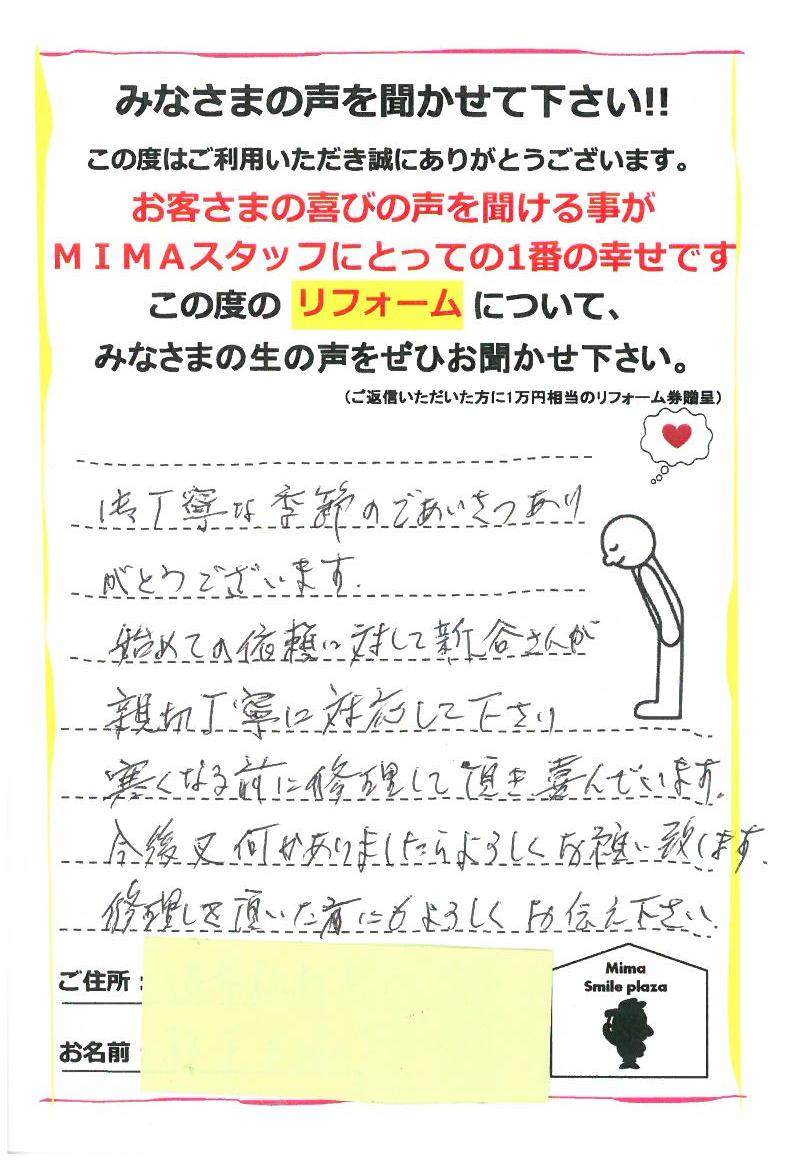 みなさまの声を聞かせて下さい!!
この度はご利用いただき誠にありがとうございます。
お客さまの喜びの声を聞ける事が
ＭＩＭＡスタッフにとっての1番の幸せです
この度の リフォーム について、
みなさまの生の声をぜひお聞かせ下さい。
（ご返信いただいた方に1万円相当のリフォーム券贈呈）
御丁寧な季節のごあいさつあり
がとうございます.
始めての依頼に対して新谷さんが
親切丁寧に対応して下さり
寒くなる前に修理して頂き喜んでいます.
今後又何かありましたらよろしくお願い致します.
修理しを頂いた者にもよろしくお伝え下さい.
ご住所：
お名前：
Mima
Smile plaza